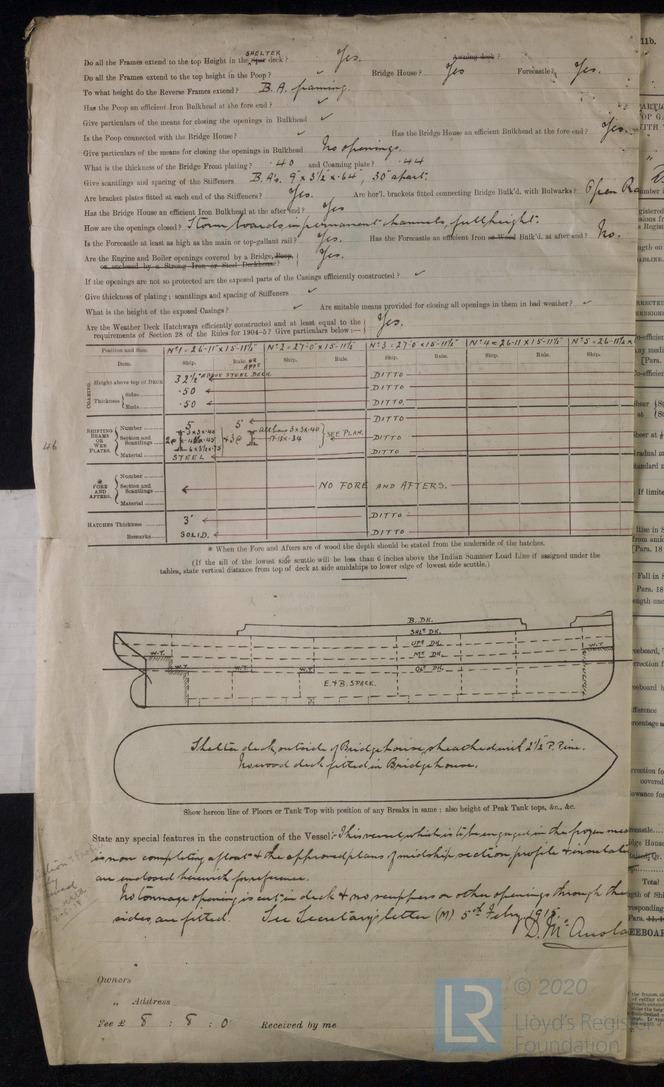 SHELTER
Do all the Frames extend to the top Height in the Spar deck? Yes. Awning deck?
Do all the Frames extend to the top height in the Poop? ✓ Bridge House? Yes Forecastle? Yes.
To what height do the Reverse Frames extend? B.A. framing.
Has the Poop an efficient Iron Bulkhead at the fore end? ✓
Give particulars of the means for closing the openings in Bulkhead ✓
Is the Poop connected with the Bridge House? ✓ Has the Bridge House an efficient Bulkhead at the fore end? Yes.
Give particulars of the means for closing the openings in Bulkhead No openings.
What is the thickness of the Bridge Front plating? .40 and Coaming plate? .44
Give scantlings and spacing of the Stiffeners B.A's. 9" x 3½ x .64, 30" apart.
Are bracket plates fitted at each end of the Stiffeners? Yes. Are hor'l. brackets fitted connecting Bridge Bulk'd. with Bulwarks? Open Ra
Has the Bridge House an efficient Iron Bulkhead at the after end? Yes
How are the openings closed? Storm boards in permanent channels, full height.
Is the Forecastle at least as high as the main or top-gallant rail? Yes. Has the Forecastle an efficient Iron or Wood Bulk'd. at after end? No.
Are the Engine and Boiler openings covered by a Bridge, Poop, Yes.
or enclosed by a Strong Iron or Steel Deckhouse?
If the openings are not so protected are the exposed parts of the Casings efficiently constructed? ✓
Give thickness of plating; scantlings and spacing of Stiffeners ✓
What is the height of the exposed Casings? ✓ Are suitable means provided for closing all openings in them in bad weather? ✓
Are the Weather Deck Hatchways efficiently constructed and at least equal to the Yes.
requirements of Section 28 of the Rules for 1904-5? Give particulars below:—
Position and Size. Nº 1 = 26-11" x 15-11½" Nº 2 = 27-0" x 15-11½" Nº 3 = 27-0 x 15-11½" Nº 4 = 26-11 x 15-11½" Nº 5 = 26-11"
Item. Ship. Rule. OR APPD Ship. Rule. Ship. Rule. Ship. Rule. Ship.
COAMING. Height above top of DECK 32½" ABOVE STEEL DECK DITTO
Thickness Sides .50 DITTO
Ends .50 DITTO
SHIFTING BEAMS OR WEB PLATES. Number 5 5 DITTO
Section and Scantlings SEE PLAN. DITTO
Material STEEL DITTO
46
* FORE AND AFTERS. Number
Section and Scantlings NO FORE AND AFTERS.
Material
HATCHES Thickness 3" DITTO
Remarks SOLID. DITTO
* When the Fore and Afters are of wood the depth should be stated from the underside of the hatches.
(If the sill of the lowest side scuttle will be less than 6 inches above the Indian Summer Load Line if assigned under the
tables, state vertical distance from top of deck at side amidships to lower edge of lowest side scuttle.)
B. DK.
SHLR DK.
UPR DK.
W.T. MN DK. W.T.
W.T. W.T. W.T.
E. & B. SPACE.
Shelter deck outside of Bridgehouse, sheathed with 2½ P. Pine.
No wood deck fitted in Bridgehouse.
Show hereon line of Floors or Tank Top with position of any Breaks in same; also height of Peak Tank tops, &c., &c.
State any special features in the construction of the Vessel:- This vessel, which is to be engaged in the frozen mea
is now completing afloat & the approved plans of midship section profile & insulati
are enclosed herewith for reference.
No tonnage opening is cut in deck & no scuppers or other openings through the
sides, are fitted. See Secretary's letter (M) 5th Feby. 1918.
Owners
„ Address
Fee £ 8 : 8 : 0 Received by me
LR © 2020
Lloyd's Register
Foundation